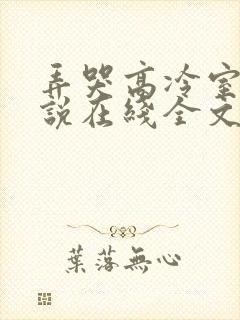 弄哭高冷室
説在綫全文
葉落無心